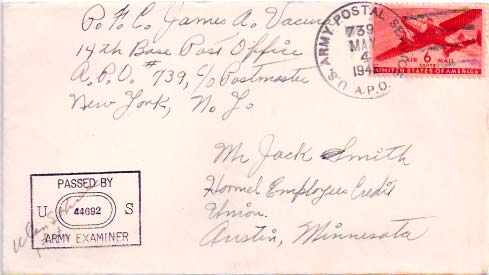 P.F.C. James A.
14th Base Post Office
A.P.O. #739, c/o Postmaster
New York, N.Y.
U.S. ARMY POSTAL
739
MAY
4
A.P.O.
AIR 6 MAIL
CENTS
UNITED STATES OF AMERICA
Mr Jack Smith
Hormel Employees Credit
Union.
Austin, Minnesata
PASSED BY
U 44692 S
ARMY EXAMINER